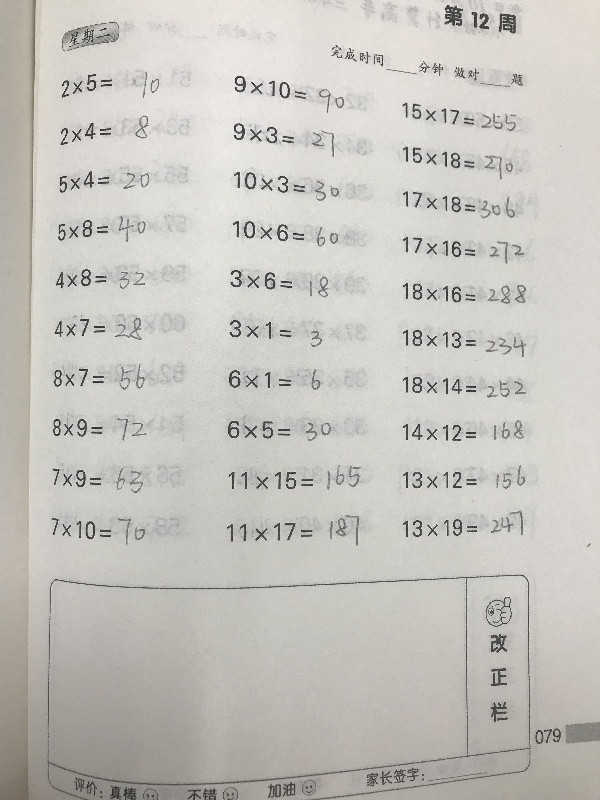 第12周
星期二
完成时间____分钟 做对____题
2×5=10
2×4=8
5×4=20
5×8=40
4×8=32
4×7=28
8×7=56
8×9=72
7×9=63
7×10=70
9×10=90
9×3=27
10×3=30
10×6=60
3×6=18
3×1=3
6×1=6
6×5=30
11×15=165
11×17=187
15×17=255
15×18=270
17×18=306
17×16=272
18×16=288
18×13=234
18×14=252
14×12=168
13×12=156
13×19=247
改正栏
079
评价：真棒 不错 加油 家长签字：